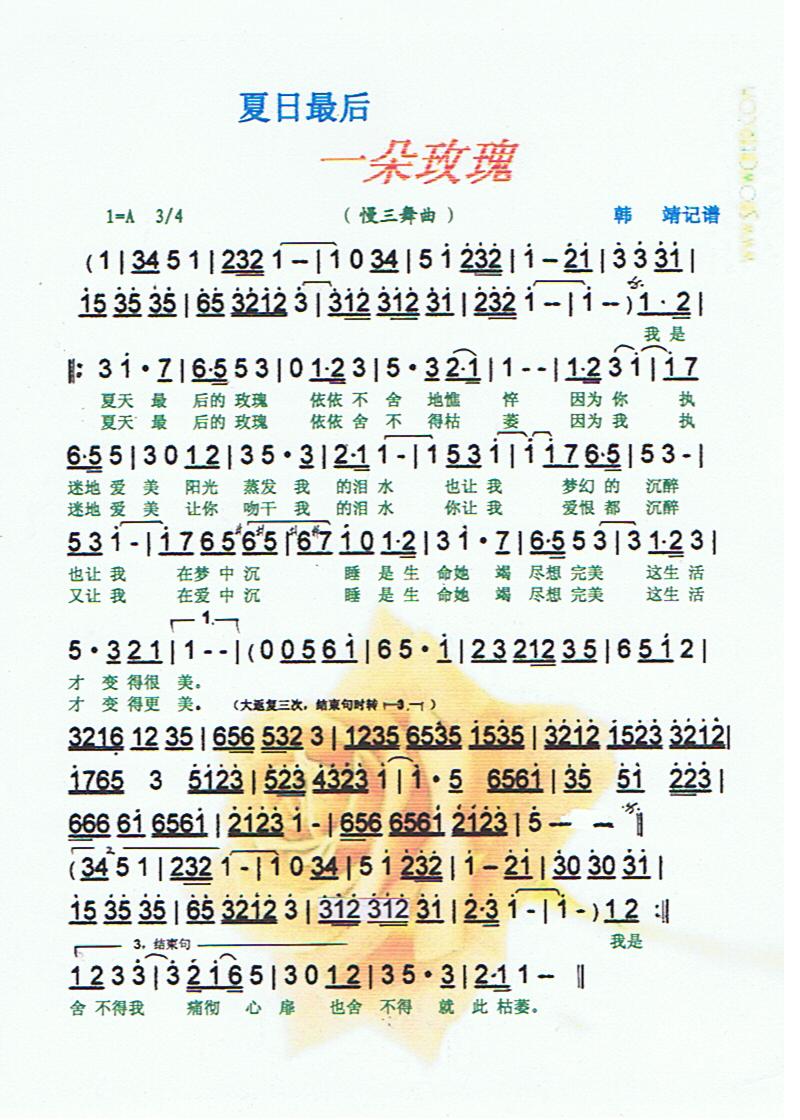 夏日最后
一朵玫瑰
1=A 3/4 (慢三舞曲) 韩 靖记谱
(1|34 5 1|232 1 --|1 0 34|5 1 232|1 - 21|3 3 31|
15 35 35|65 3212 3|312 312 31|232 1 --|1 --)1 · 2|
我是
‖: 3 1 · 7|6·5 5 3|0 1·2 3|5 · 3 2·1|1 - -|1·2 3 1|1 7
夏天 最 后的 玫瑰 依依 不 舍 地憔 悴 因为 你 执
夏天 最 后的 玫瑰 依依 舍 不 得枯 萎 因为 我 执
6·5 5|3 0 1 2|3 5 · 3|2·1 1 -|1 5 3 1|1 1 7 6·5|5 3 -|
迷地 爱 美 阳光 蒸发 我 的泪 水 也让 我 梦幻 的 沉醉
迷地 爱 美 让你 吻干 我 的泪 水 你让 我 爱恨 都 沉醉
5 3 1 -|1 7 6 5 #6 #5|#6 #7 1 0 1·2|3 1 · 7|6·5 5 3|3 1·2 3|
也让 我 在梦 中 沉 睡 是 生 命她 竭 尽想 完美 这生 活
又让 我 在爱 中 沉 睡 是 生 命她 竭 尽想 完美 这生 活
1.
5 · 3 2 1|1 - -|(0 0 5 6 1|6 5 · 1|2 3 212 3 5|6 5 1 2|
才 变 得很 美。
才 变 得更 美。 (大返复三次,结束句时转 3.)
3216 12 35|656 532 3|1235 6535 1535|3212 1523 3212|
1765 3 5123|523 4323 1|1 · 5 6561|35 51 223|
666 61 6561|2123 1 -|656 6561 2123|5 — —‖
2
(34 5 1|232 1 -|1 0 34|5 1 232|1 - 21|30 30 31|
15 35 35|65 3212 3|312 312 31|2·3 1 -|1 -)1 2 :‖
我是
3,结束句
1 2 3 3|3 2 1 6 5|3 0 1 2|3 5 · 3|2·1 1 --‖
舍 不得我 痛彻 心 扉 也舍 不得 就 此 枯萎。